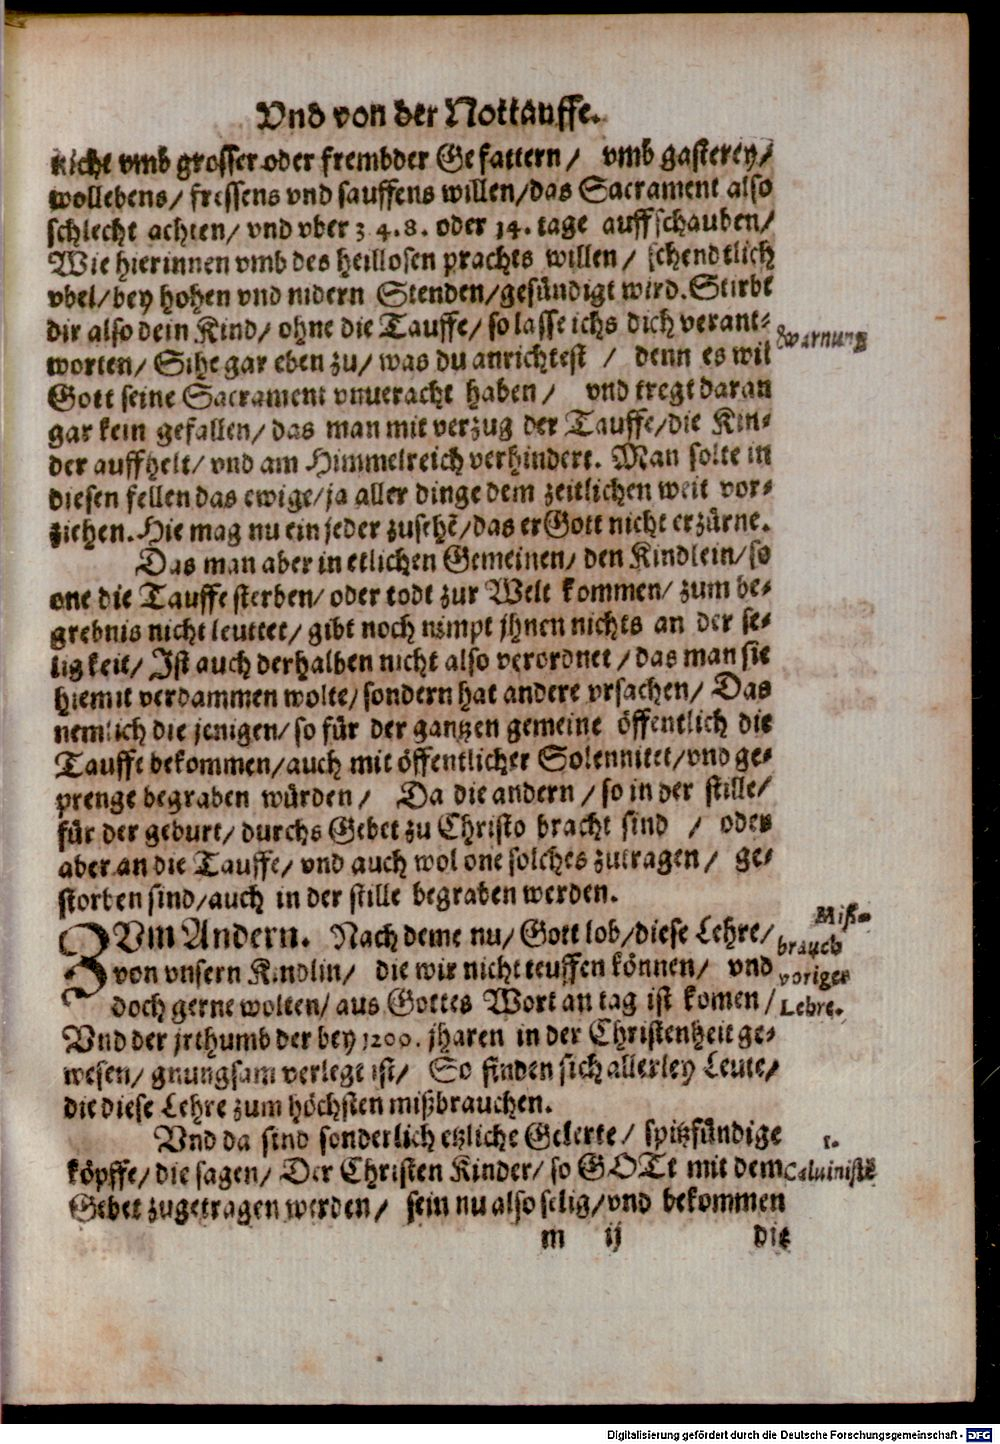 Vnd von der Nottauffe.
nicht vmb grosser oder frembder Gefattern / vmb gasterey /
wollebens / fressens vnd sauffens willen / das Sacrament also
schlecht achten / vnd vber 3 4. 8. oder 14. tage auffschauben /
Wie hierinnen vmb des heillosen prachts willen / schendtlich
vbel / bey hohen vnd nidern Stenden / gesündigt wird. Stirbt
dir also dein Kind / ohne die Tauffe / so lasse ichs dich verant-
Warnung
worten / Sihe gar eben zu / was du anrichtest / denn es wil
Gott seine Sacrament vnueracht haben / vnd tregt daran
gar kein gefallen / das man mit verzug der Tauffe / die Kin-
der auffhelt / vnd am Himmelreich verhindert. Man solte in
diesen fellen das ewige / ja aller dinge dem zeitlichen weit vor-
ziehen. Hie mag nu ein jeder zusehē / das er Gott nicht erzürne.
Das man aber in etlichen Gemeinen / den Kindlein / so
one die Tauffe sterben / oder todt zur Welt kommen / zum be-
grebnis nicht leuttet / gibt noch nimpt jhnen nichts an der se-
ligkeit / Ist auch derhalben nicht also verordnet / das man sie
hiemit verdammen wolte / sondern hat andere vrsachen / Das
nemlich die jenigen / so für der gantzen gemeine öffentlich die
Tauffe bekommen / auch mit öffentlicher Solennitet / vnd ge-
prenge begraben würden / Da die andern / so in der stille /
für der geburt / durchs Gebet zu Christo bracht sind / oder
aber an die Tauffe / vnd auch wol one solches zutragen / ge-
storben sind / auch in der stille begraben werden.
ZVm Andern. Nach deme nu / Gott lob / diese Lehre /
von vnsern Kindlin / die wir nicht teuffen können / vnd
doch gerne wolten / aus Gottes Wort an tag ist komen /
Miß-
brauch
voriger
Lehre.
Vnd der jrthumb der bey 1200. jharen in der Christenheit ge-
wesen / gnungsam verlegt ist / So finden sich allerley Leute /
die diese Lehre zum höchsten mißbrauchen.
Vnd da sind sonderlich etzliche Gelerte / spitzfündige
köpffe / die sagen / Der Christen Kinder / so GOTt mit dem
Gebet zugetragen werden / sein nu also selig / vnd bekommen
1.
Caluinistē
m ij die
Digitalisierung gefördert durch die Deutsche Forschungsgemeinschaft - DFG